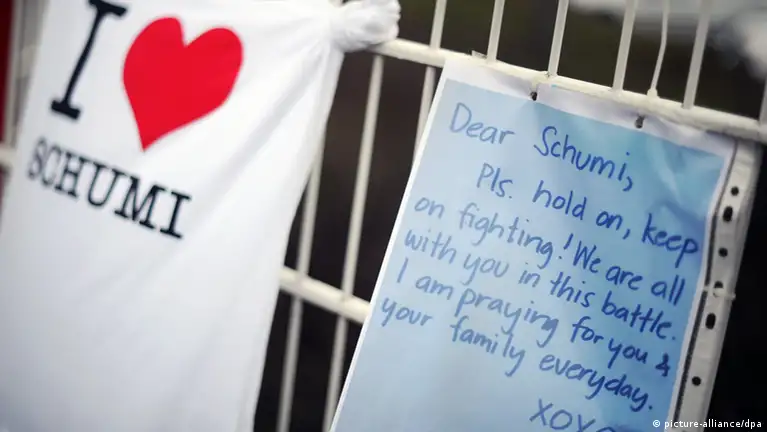 I
SCHUMI
Dear Schumi,
Pls. hold on, keep
on fighting! We are all
with you in this battle.
I am praying for you &
your family everyday.
XOXO
© picture-alliance/dpa